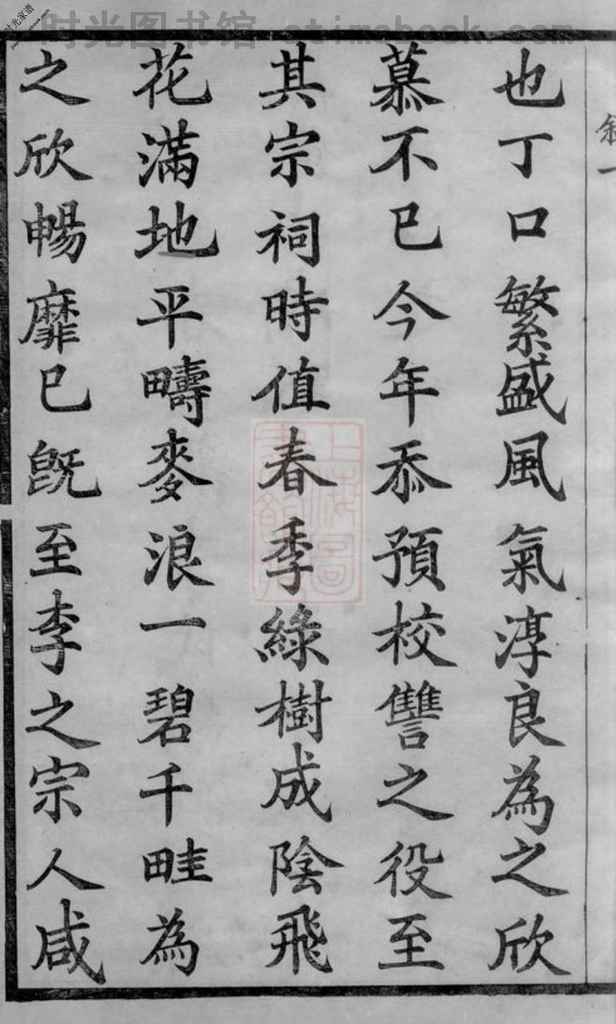 也丁口繁盛風氣淳良為之欣
慕不已今年忝預校讐之役至
其宗祠時值春季綠樹成陰飛
花滿地平疇麥浪一碧千畦為
之欣暢靡已旣至李之宗人咸
时光图书馆